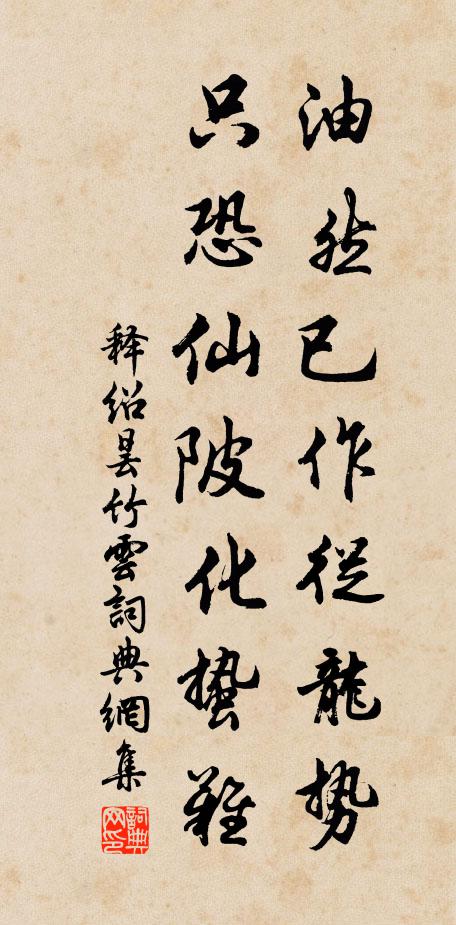 油然已作從龍勢
只恐仙陂化蟄難
释绍昙竹雲詞典網集
詞典网印